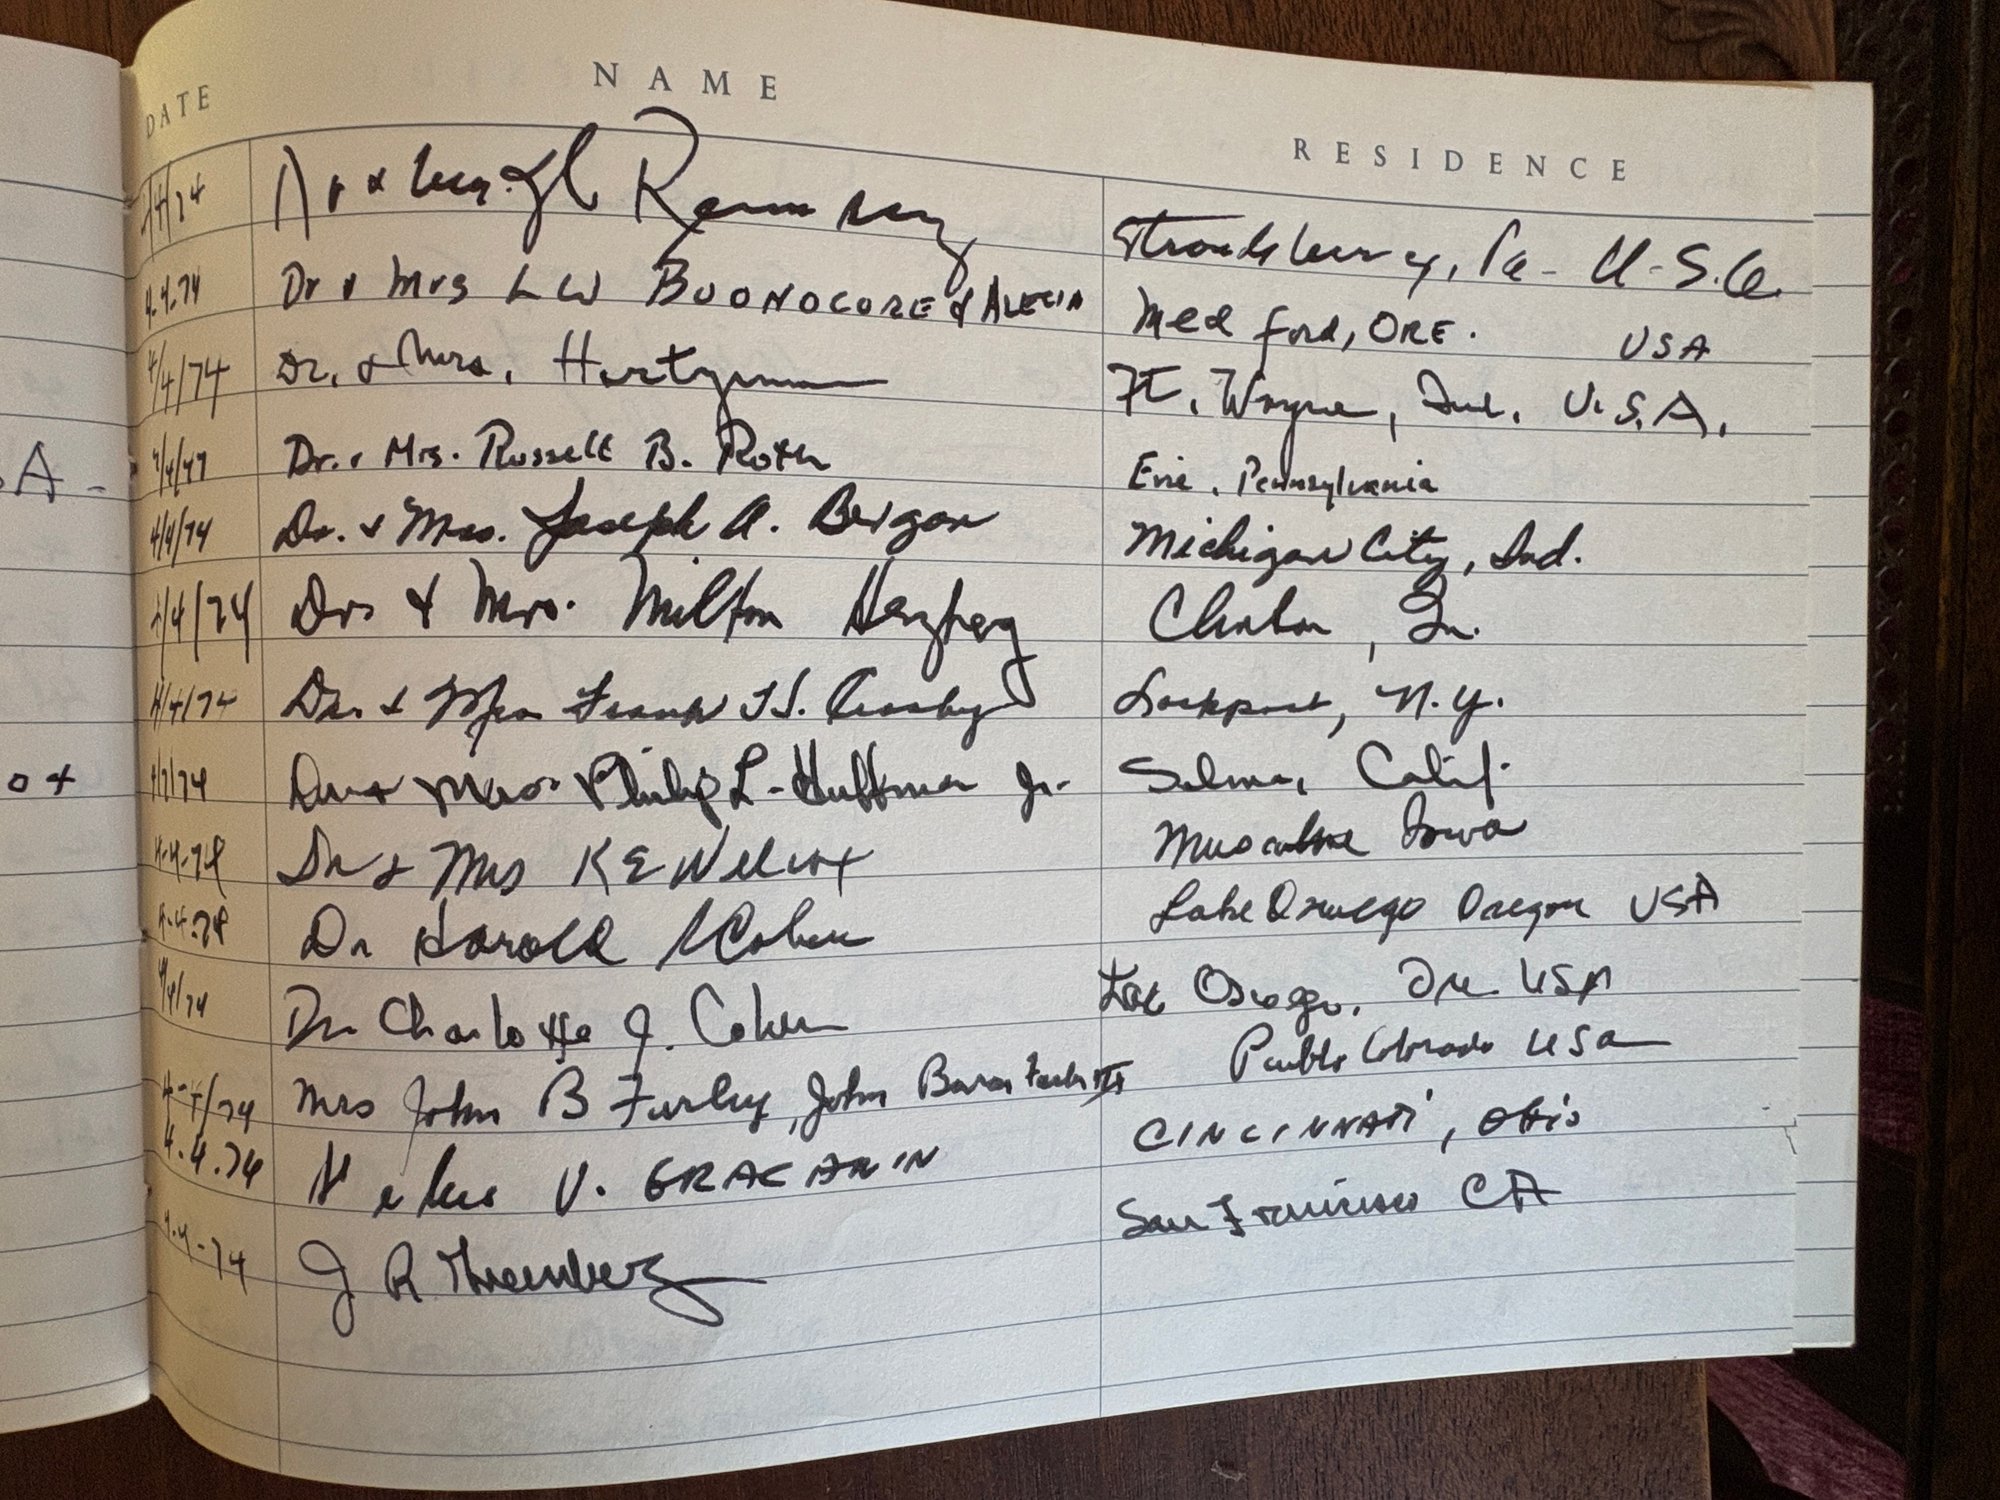 DATE NAME RESIDENCE
4/4/74 Ramsay Stroudsburg, Pa- U.S.A.
4.4.74 Dr & Mrs L W BUONOCORE & ALECIA Medford, ORE. USA
4/4/74 Dr. & Mrs. Hartzman Ft. Wayne, Ind. U.S.A.
Dr. & Mrs. Russell B. Roth Erie, Pennsylvania
4/4/74 Dr. & Mrs. Joseph A. Bergan Michigan City, Ind.
4/4/74 Drs & Mrs. Milton Herzberg Clinton, In.
4/4/74 Dr. & Mrs Frank H. Crosby Lockport, N.Y.
Dr & Mrs. Philip L. Huffman Jr. Selma, Calif.
4-4-74 Dr & Mrs K E Wilcox Muscatine Iowa
4-4-74 Dr Harold Cohen Lake Oswego Oregon USA
4/4/74 Dr Charlotte J. Cohen Lake Oswego, Ore. USA
4-4/74 Mrs John B Farley, John Baron Farley III Pueblo Colorado USA
4.4.74 V. GRACANIN CINCINNATI, OHIO
4-4-74 J R San Francisco CA
A -